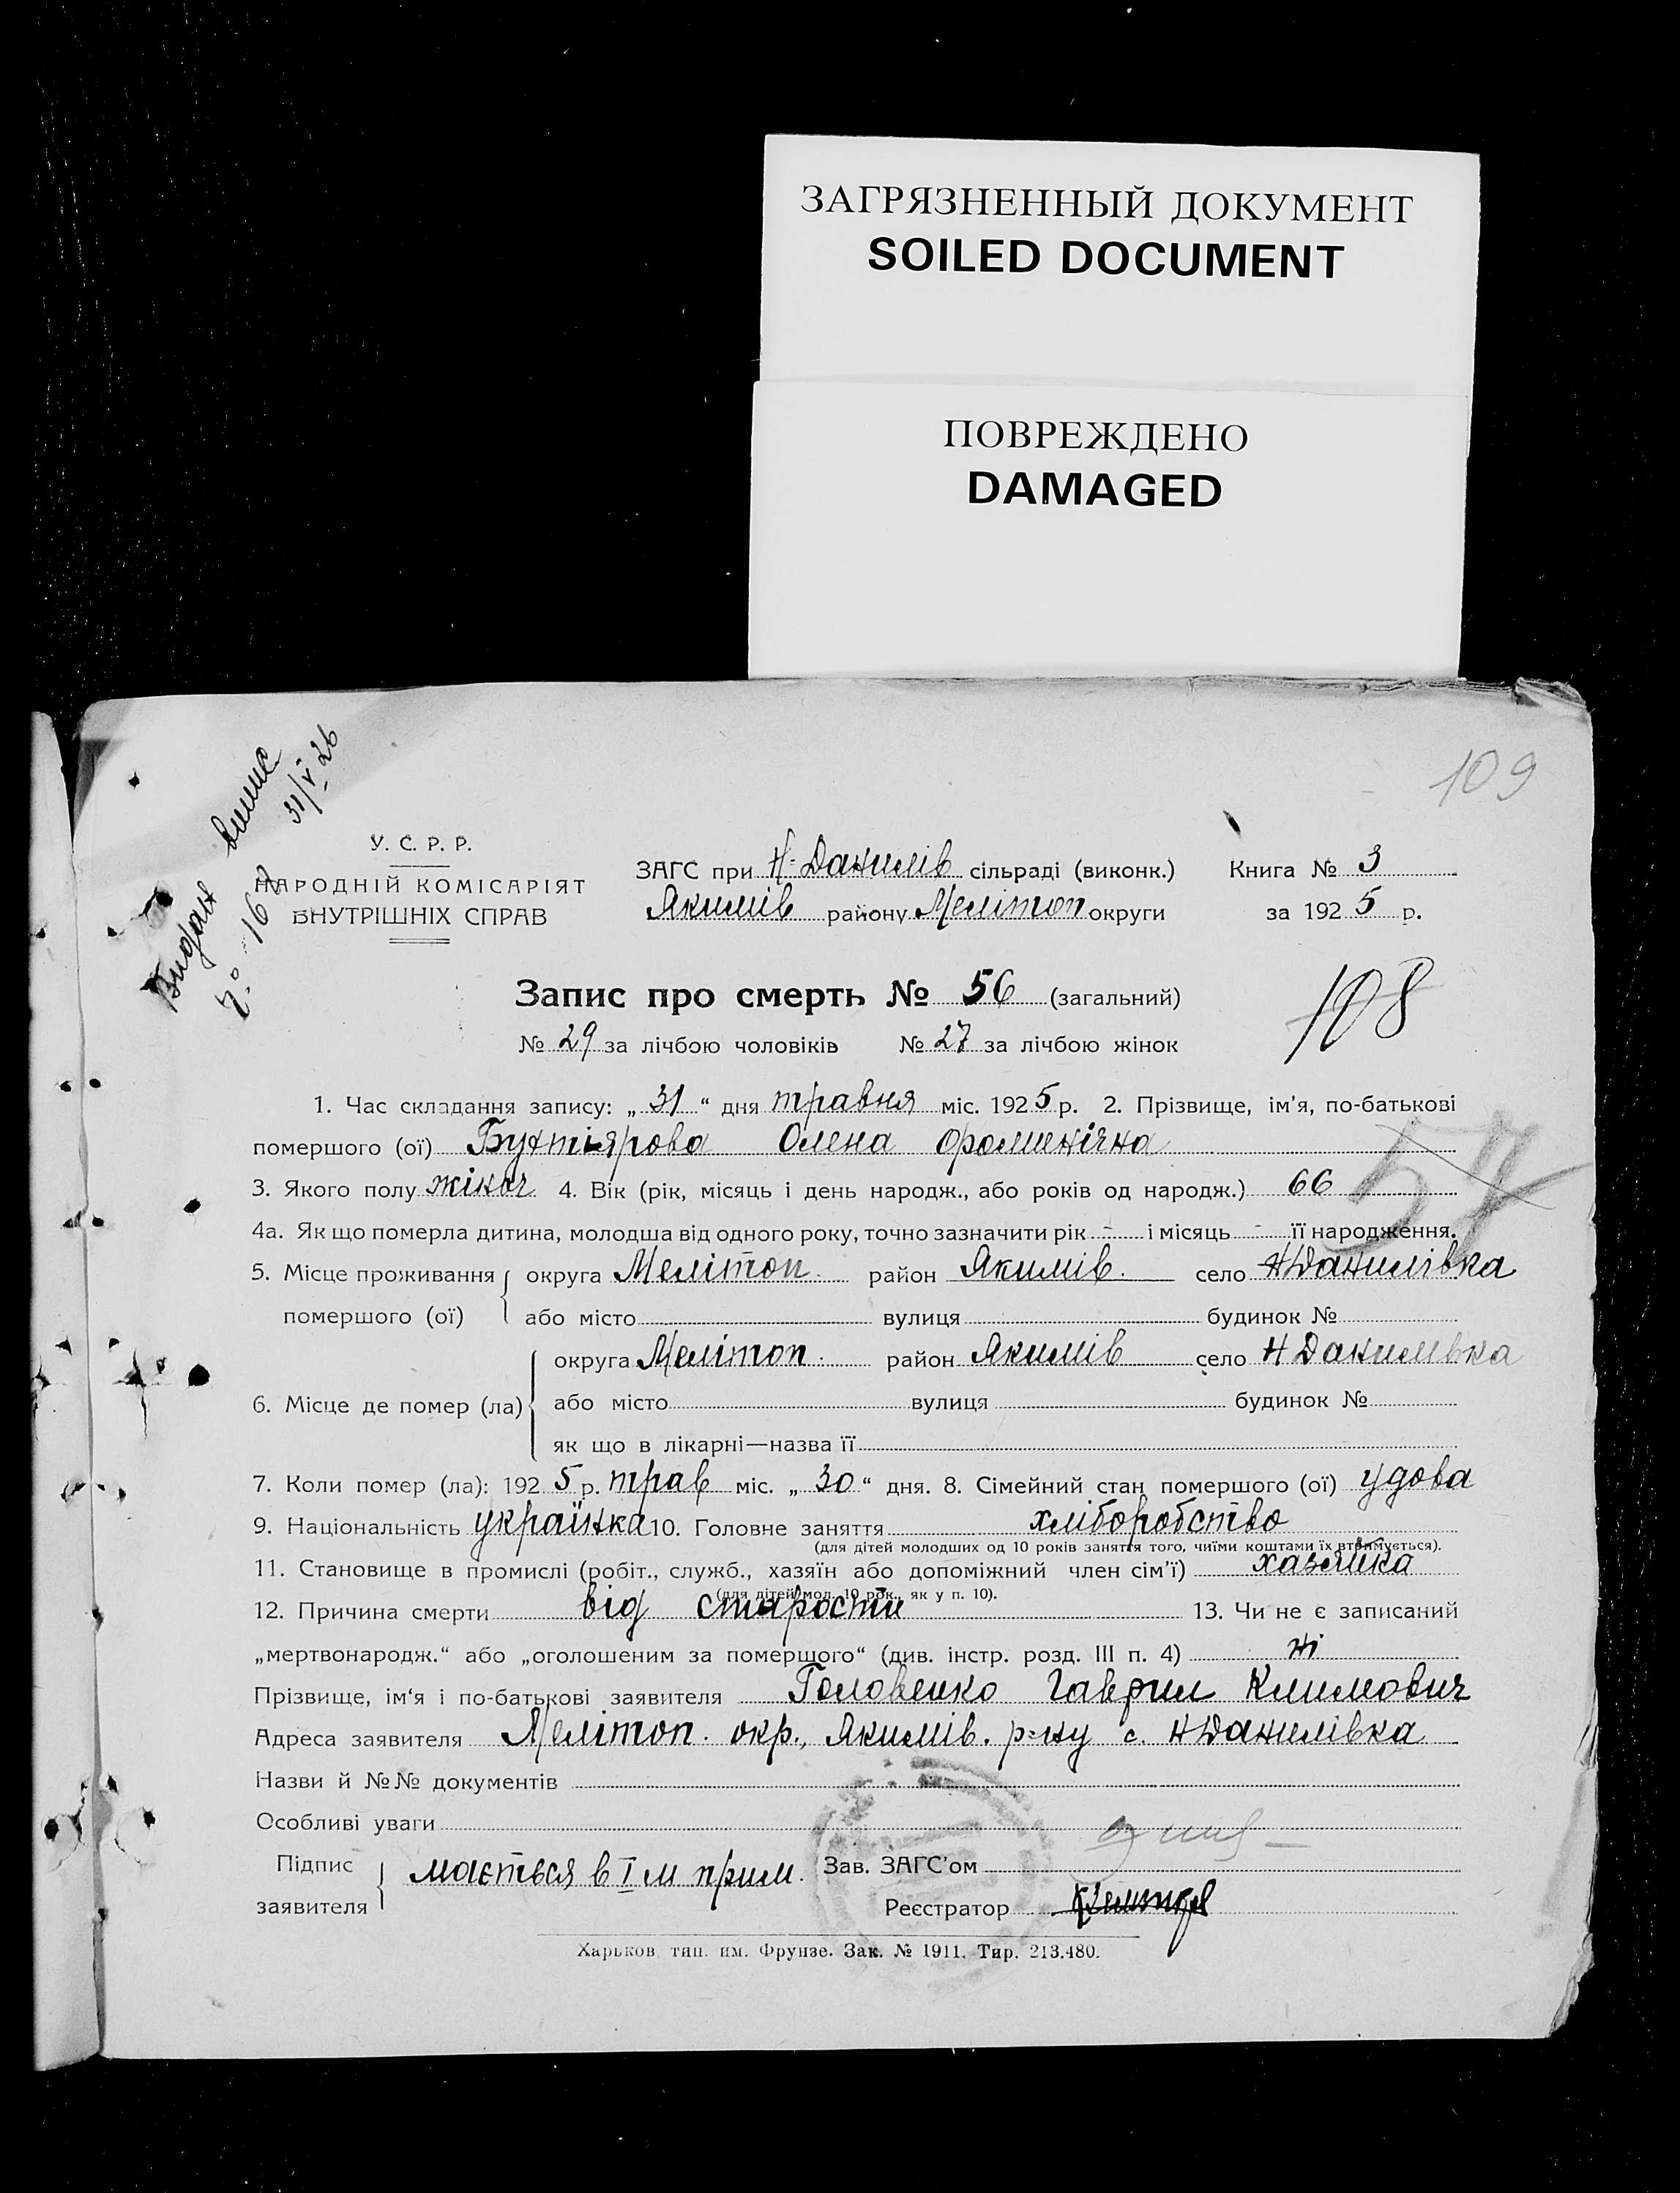 ЗАГРЯЗНЕННЫЙ ДОКУМЕНТ
SOILED DOCUMENT
ПОВРЕЖДЕНО
DAMAGED
109
Видан виппс
31/V 26
У. С. Р. Р.
НАРОДНІЙ КОМІСАРІЯТ
ВНУТРІШНІХ СПРАВ
ЗАГС при Н-Данилів сільраді (виконк.) Книга № 3
Якимів району Мелітоп округи за 1925 р.
Запис про смерть № 56 (загальний)
108
№ 29 за лічбою чоловіків № 27 за лічбою жінок
1. Час складання запису: „ 31 “ дня травня міс. 1925 р. 2. Прізвище, ім’я, по-батькові
помершого (ої) Бухтіярова Олена
57
3. Якого полу жіноч 4. Вік (рік, місяць і день народж., або років од народж.) 66
4а. Як що померла дитина, молодша від одного року, точно зазначити рік - і місяць - її народження.
5. Місце проживання округа Мелітоп. район Якимів. село НДанилівка
помершого (ої) або місто вулиця будинок №
округа Мелітоп. район Якимів село Н Данилівка
6. Місце де помер (ла) або місто вулиця будинок №
як що в лікарні—назва її
7. Коли помер (ла): 1925 р. трав міс. „ 30 “ дня. 8. Сімейний стан помершого (ої) удова
9. Національність українка 10. Головне заняття хліборобство
(для дітей молодших од 10 років заняття того, чиїми коштами їх втримується).
11. Становище в промислі (робіт., служб., хазяїн або допоміжний член сім’ї) хазяйка
(для дітей мол. 10 рок., як у п. 10).
12. Причина смерти від старости 13. Чи не є записаний
„мертвонародж.“ або „оголошеним за помершого“ (див. інстр. розд. III п. 4) ні
Прізвище, ім‘я і по-батькові заявителя Головенко Гаврил Климович
Адреса заявителя Мелітоп. окр., Якимів. р-ну с. НДанилівка
Назви й №№ документів
Особливі уваги
Підпис мається в І м прим. Зав. ЗАГС’ом
заявителя Реєстратор
Харьков, тип. им. Фрунзе. Зак. № 1911. Тир. 213.480.